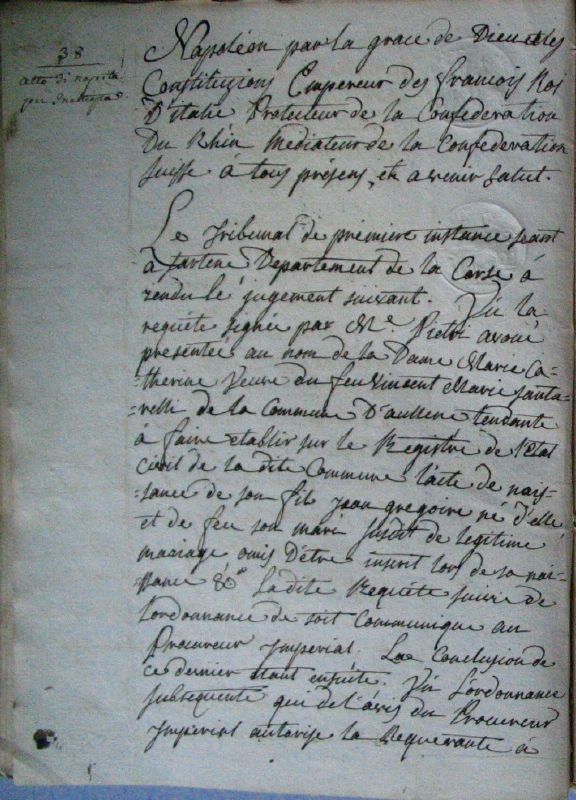 38
Atto di nascita
per
Napoléon par la grace de Dieu et les
Constitutions Empereur des françois Roi
D'italie Protecteur de la Confederation
Du Rhin Mediateur de la Confederation
Suisse à tous présens, et a venir Salut.
Le Tribunal de première instance seant
à Sartene Departement de la Corse à
rendu le jugement suivant. Vu la
requête signée par Me Pietri avoué
presentée au nom de la Dame Marie Ca-
-therine Veuve du feu Vincent Marie Santa-
-relli de la Commune D'aullene tendante
à faire etablir sur le Registre de l'Etat
civil de la dite Commune l'acte de nais-
-sance de son fil jean gregoire né d'elle
et de feu son mari susdit de legitime
mariage omis D'être inscrit lors de sa nai-
-ssance &a Ladite Requête suivie de
Lordonnance de soit Communiqué au
Procureur Imperial. La Conclusion de
ce dernier étant ensuite. Vu L'ordonnance
subsequente qui de l'avis du Procureur
Imperial autorise la Requerante à